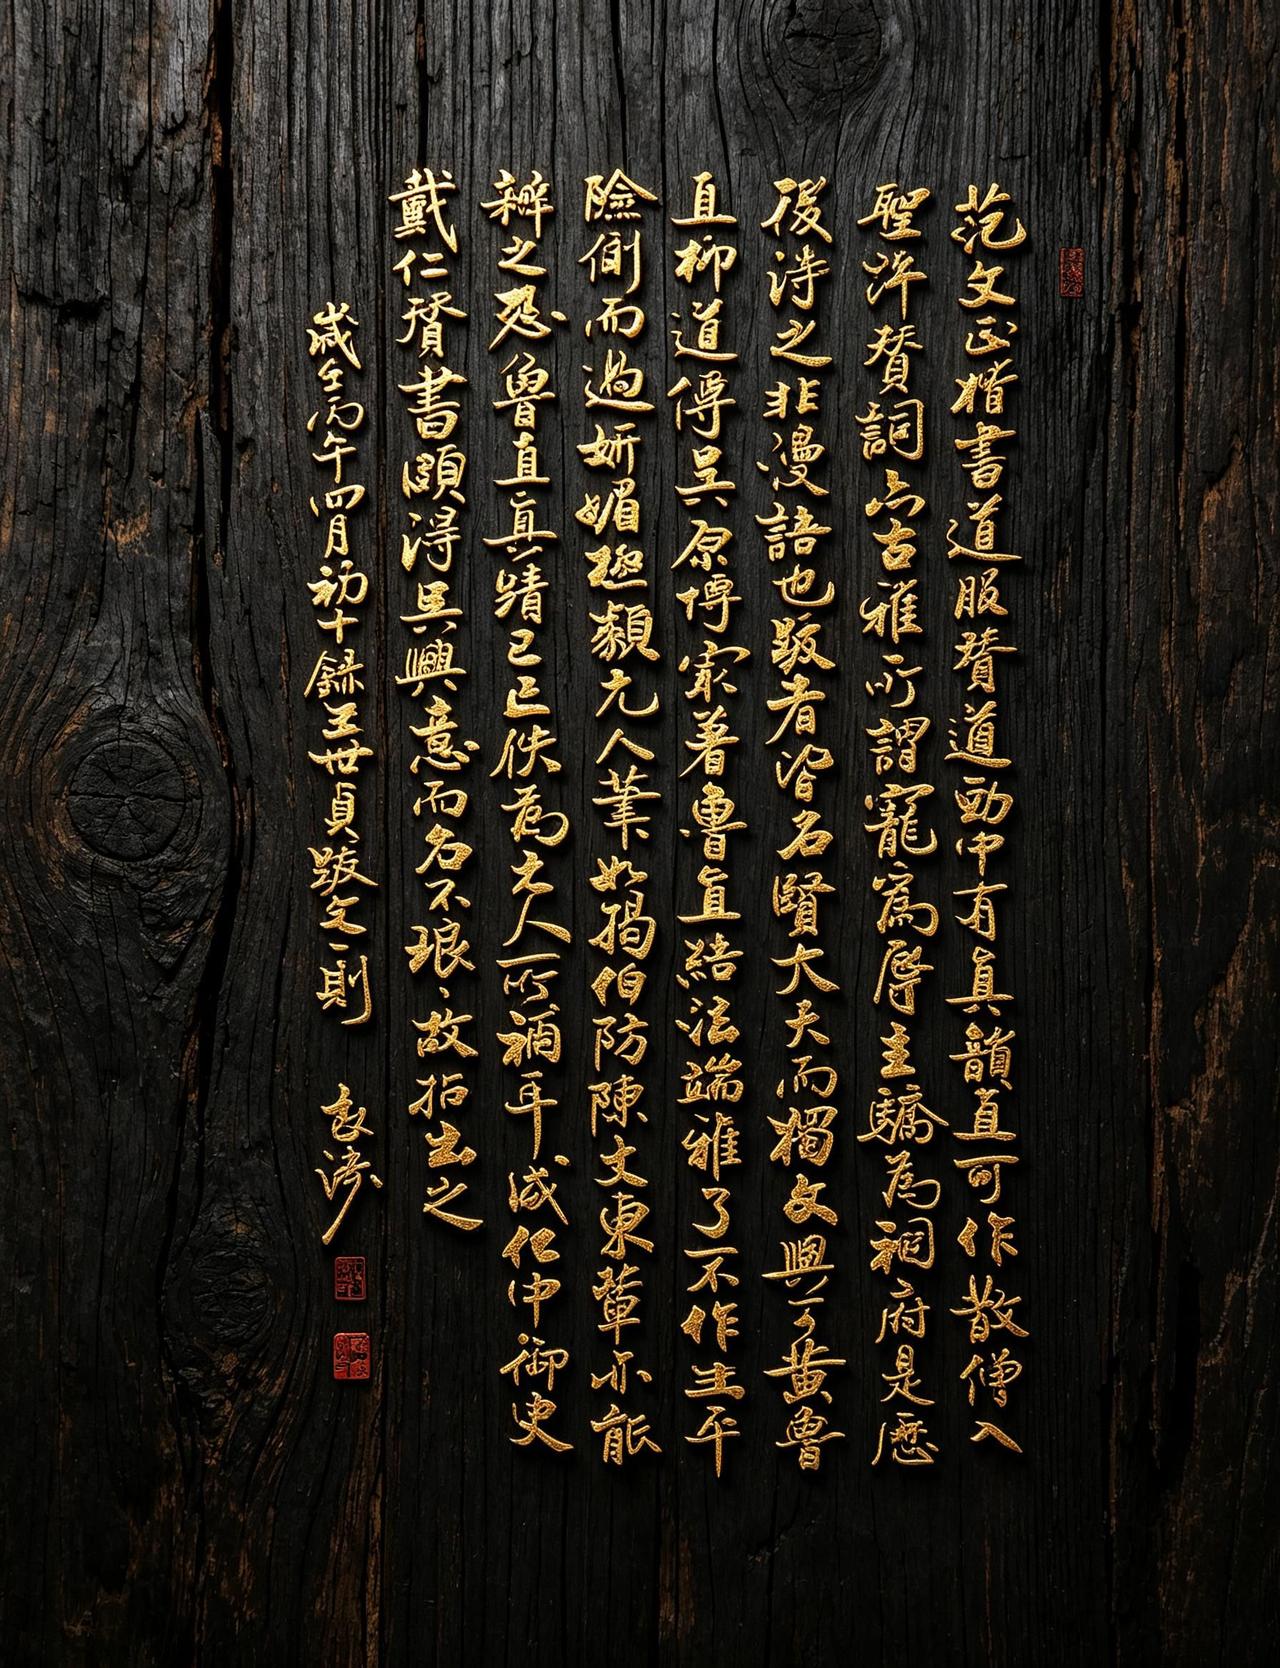 范文正楷書道服贊道勁中有真韻直可作散僧入
聖評贊詞亦古雅所謂寵為辱主驕為禍府是歷
後得之非漫語也跋者皆名賢大夫而獨文與可黃魯
直柳道傳吳原博最著魯直結法端雅了不作生平
險側而過妍媚極類元人筆如揭伯防陳文東輩亦能
辦之恐魯直真蹟已亡佚為元人所補耳成化中御史
戴仁贇書頗得吳興意而名不琅琅故拈出之
歲在丙午四月初十錄王世貞跋文一則